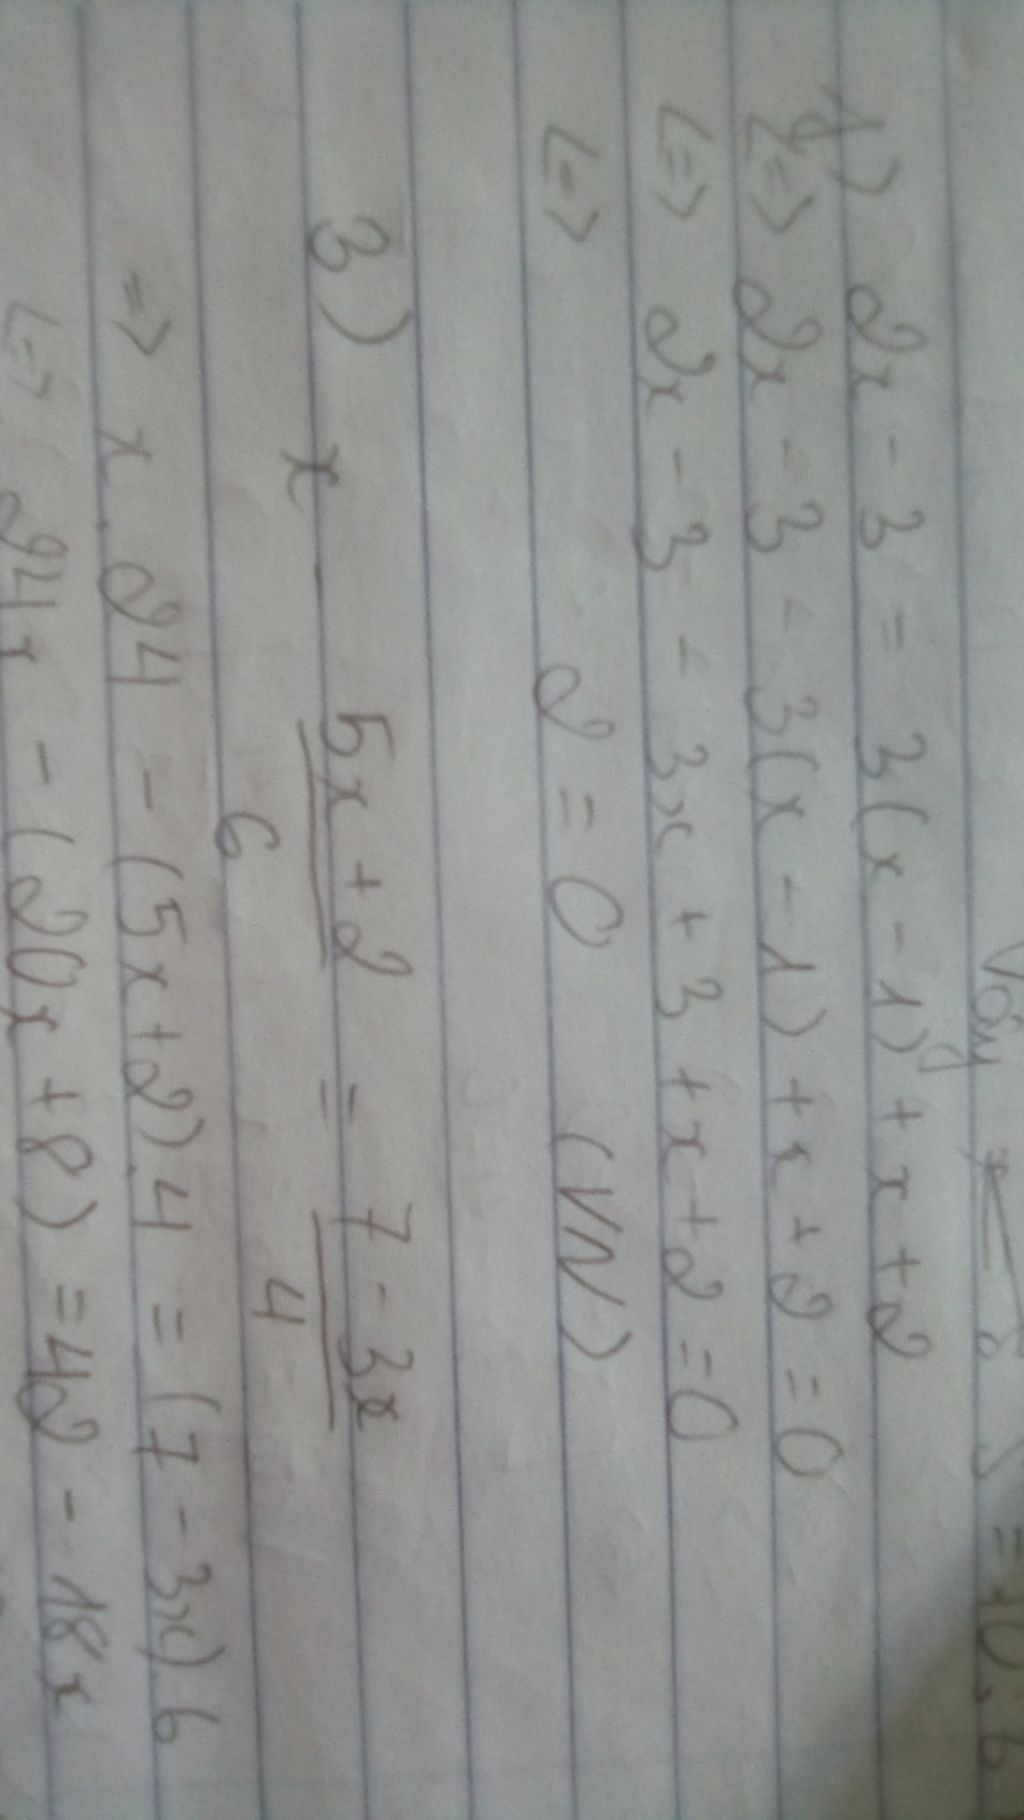 Vậy
= 10,6
1) 2x - 3 = 3(x - 1) + x + 2
<=> 2x - 3 - 3(x - 1) + x + 2 = 0
<=> 2x - 3 - 3x + 3 + x + 2 = 0
<=> 2 = 0 (VN)
3) x - \frac{5x + 2}{6} = \frac{7 - 3x}{4}
=> x . 24 - (5x + 2) . 4 = (7 - 3x) 6
<=> 24x - (20x + 8) = 42 - 18x